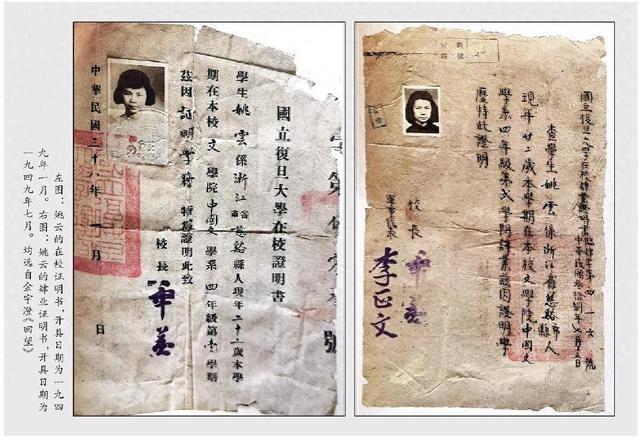 國立復旦大學在校證明書
學生姚雲係浙江省慈谿縣人現年二十二歲本學
期在本校文學院中國文學系四年級第壹學期
茲因証明學籍特發證明此致
校長章益
中華民國三十八年一月
日
號
國立復旦大學在校肄業證明書
肄業字第四一六號
查學生姚雲係浙江省慈谿縣人
現年廿二歲本學期在本校文學院中國文
學系四年級第弍學期肄業茲因證明學
歷特此證明
校長章益
軍事代表李正文
左图：姚云的在校证明书，开具日期为一九四
九年一月。右图：姚云的肄业证明书，开具日期为
一九四九年七月。均选自金宇澄《回望》